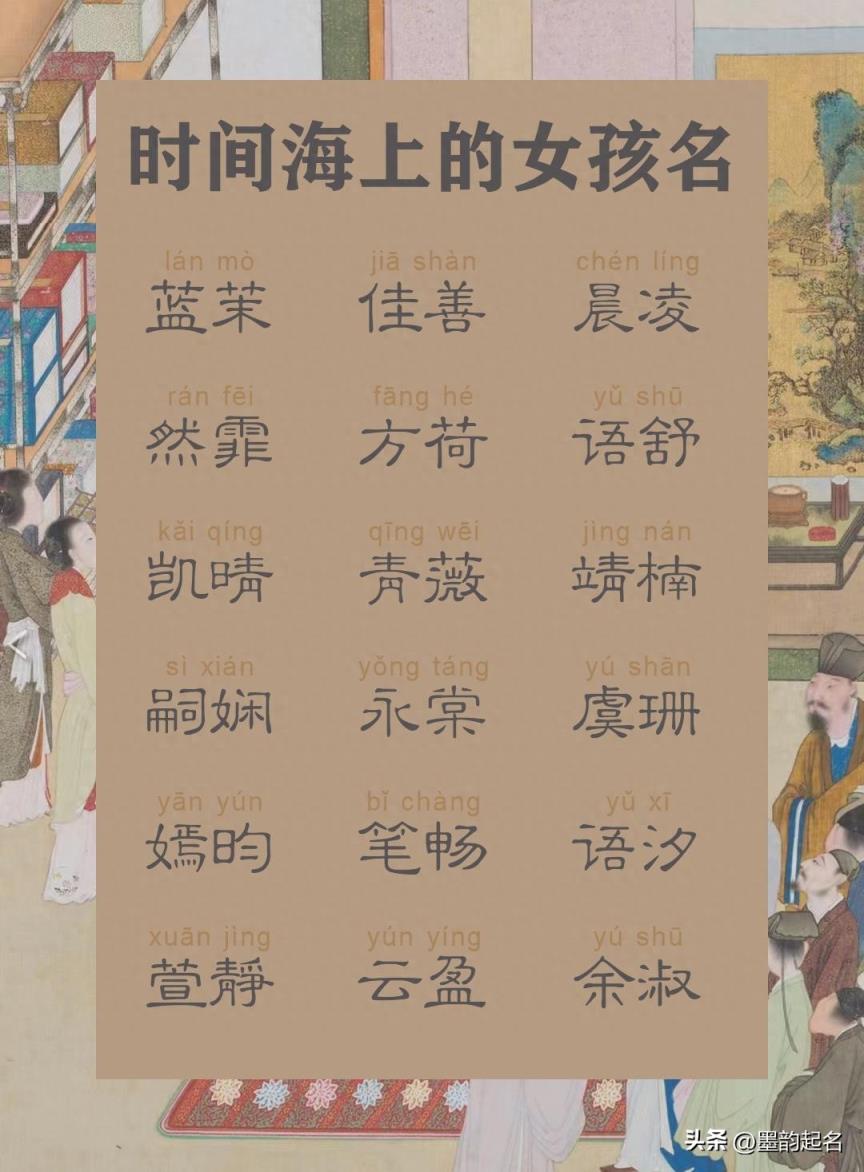 时间海上的女孩名
lán mò jiā shàn chén líng
蓝茉 佳善 晨凌
rán fēi fāng hé yǔ shū
然霏 方荷 语舒
kǎi qíng qīng wēi jìng nán
凯晴 青薇 靖楠
sì xián yǒng táng yú shān
嗣娴 永棠 虞珊
yān yún bǐ chàng yǔ xī
嫣昀 笔畅 语汐
xuān jìng yún yíng yú shū
萱靜 云盈 余淑
头条 @墨韵起名